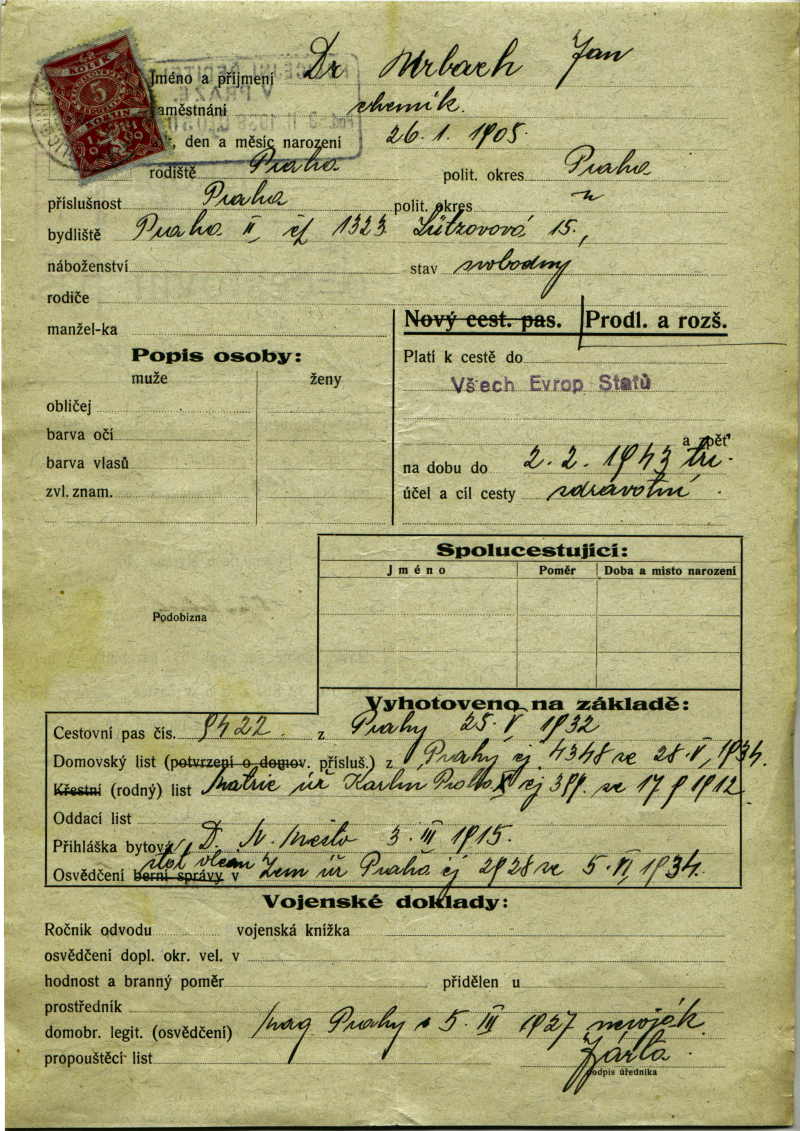 KOLEK
5
Jméno a příjmení Dr Urbach Jan
zaměstnání chemik.
den a měsíc narození 26. 1. 1905.
rodiště Praha polit. okres Praha
příslušnost Praha polit. okres "
bydliště Praha II, čp 1323 Lützovová 15,
náboženství stav svobodný
rodiče
manžel-ka
Nový cest. pas. Prodl. a rozš.
Popis osoby:
muže ženy
obličej
barva očí
barva vlasů
zvl. znam.
Platí k cestě do
Všech Evrop Států
a zpět
na dobu do 2. 2. 1943 tři.
účel a cíl cesty zdravotní.
Spolucestující:
Jméno Poměr Doba a místo narození
Podobizna
Vyhotoveno na základě:
Cestovní pas čís. 9422. z Prahy 25. V 1932
Domovský list (potvrzení o domov. přísluš.) z Prahy čj. 4348 ze 28. V, 1934.
Křestní (rodný) list Matric úř Karlín Praha X čj 399. ze 17 9 1912.
Oddací list
Přihláška bytová D. N. Město 3. III 1915.
Osvědčení berní správy v stát občan Zem úř Praha čj 2928 ze 5. VI, 1934.
Vojenské doklady:
Ročník odvodu vojenská knížka
osvědčení dopl. okr. vel. v
hodnost a branný poměr přidělen u
prostředník
domobr. legit. (osvědčení) Mag Prahy s 5. III 1927 nevoják.
propouštěcí list
podpis úředníka